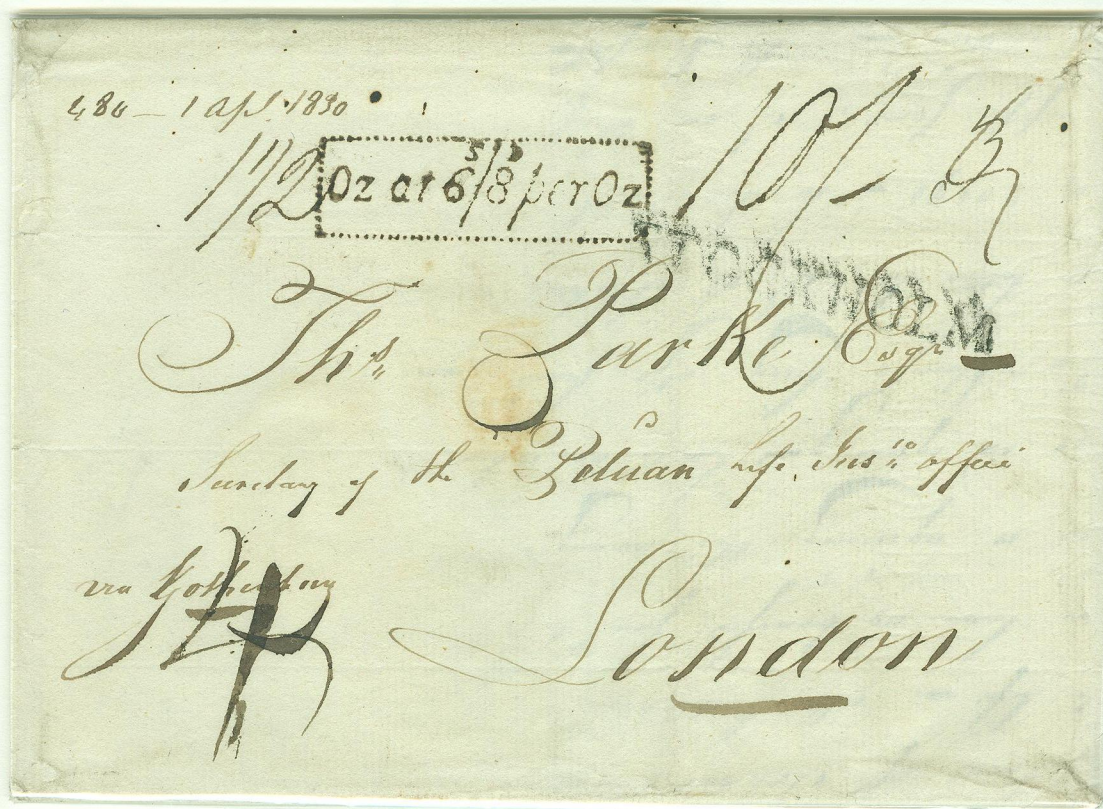 480 — 1 apl. 1830
1 1/2 Oz at 6/8 per Oz 10/-
STOCKHOLM
Ths. Parke Esqr
of the Pelican Life Insce office
via Gothenburg
London